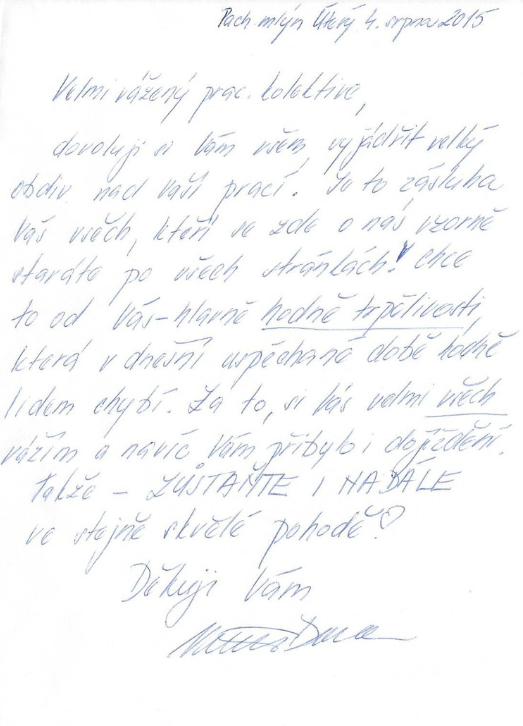 Pach. mlýn Úterý 4. srpna 2015
Velmi vážený prac. kolektive,
dovoluji si Vám všem, vyjádřit velký
obdiv nad vaší prací. Je to zásluha
Vás všech, kteří se zde o nás vzorně
staráte po všech stránkách! chce
to od Vás - hlavně hodně trpělivosti,
která v dnešní uspěchané době hodně
lidem chybí. Za to, si Vás velmi všech
vážím a navíc Vám přibylo i dojíždění.
Takže - ZŮSTAŇTE I NADÁLE
ve stejně skvělé pohodě! ♡
Děkuji Vám